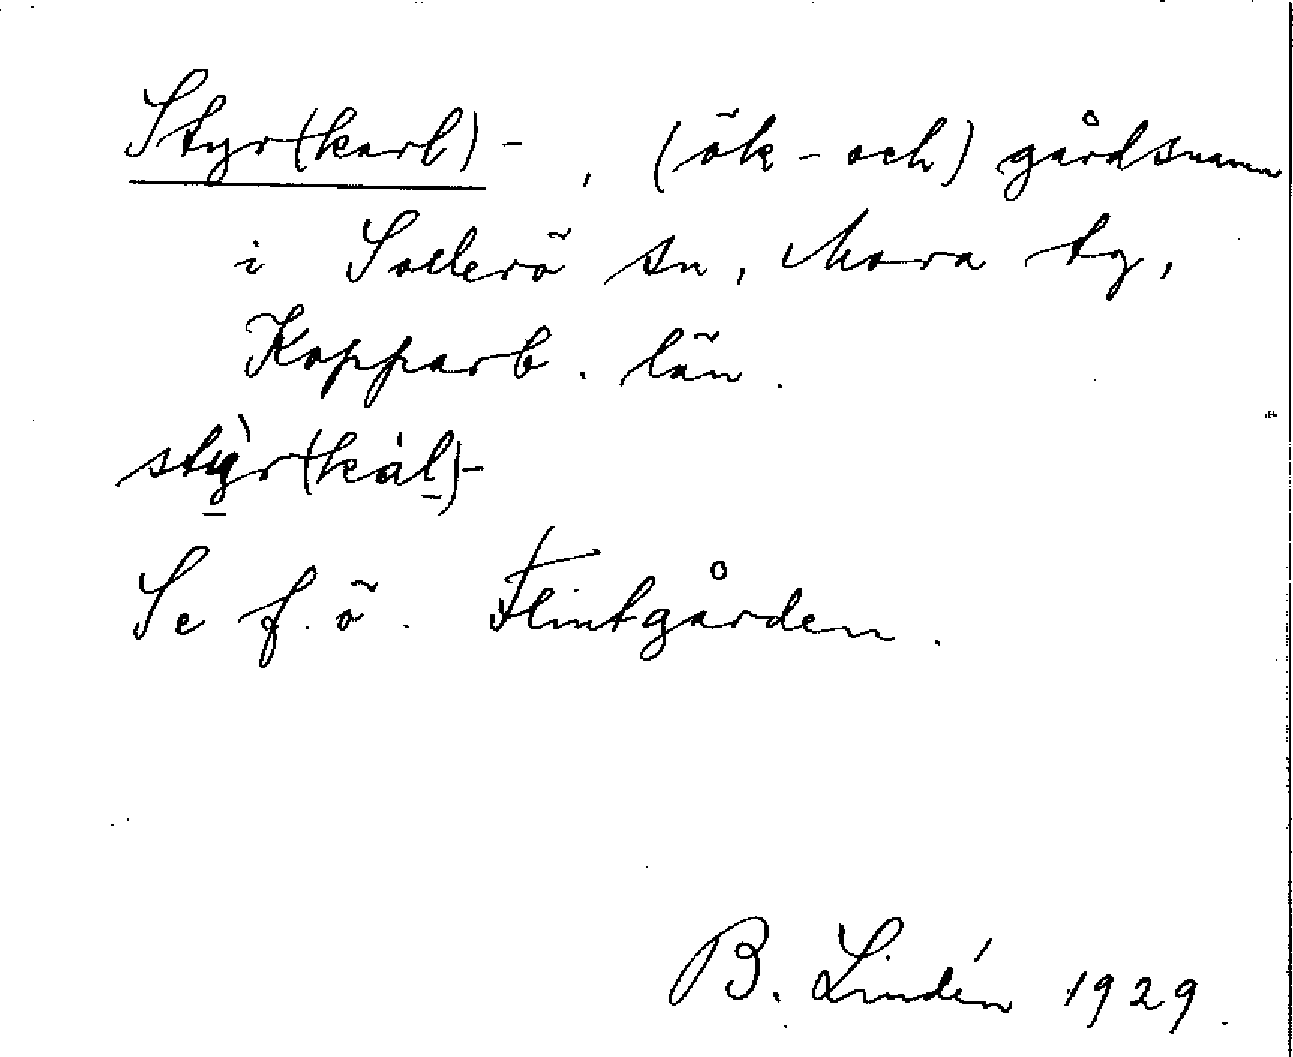 Styr(karl)-, (ök- och) gårdsnamn
i Sollerö sn, Mora tg,
Kopparb. län.
stỳ̲r(kàl̲)-
Se f.ö. Flintgården.
B. Lindén 1929.